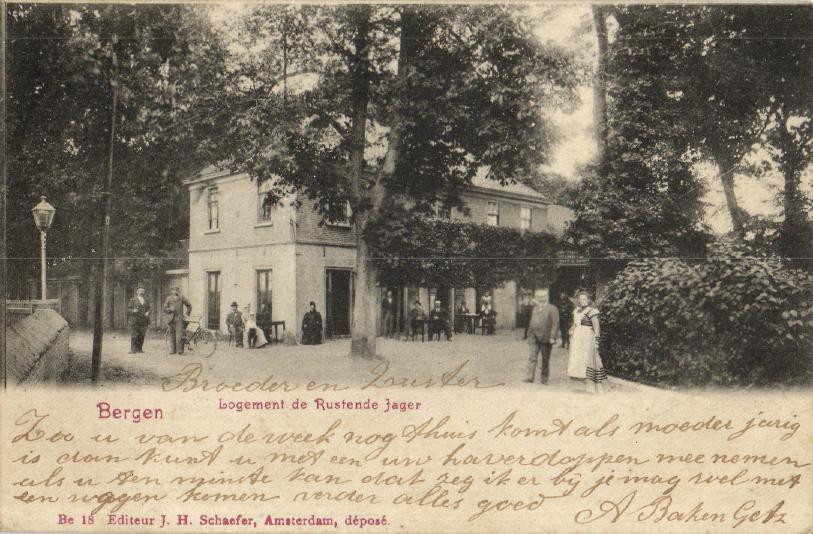 Broeder en Zuster
Bergen
Logement de Rustende Jager
Zoo u van de week nog thuis komt als moeder jarig
is dan kunt u met een uw haverdoppen mee nemen
als u ten minste kan dat zeg ik er bij je mag wel met
een wagen komen verder alles goed
A Baken Getz
Be 18 Editeur J. H. Schaefer, Amsterdam, déposé.